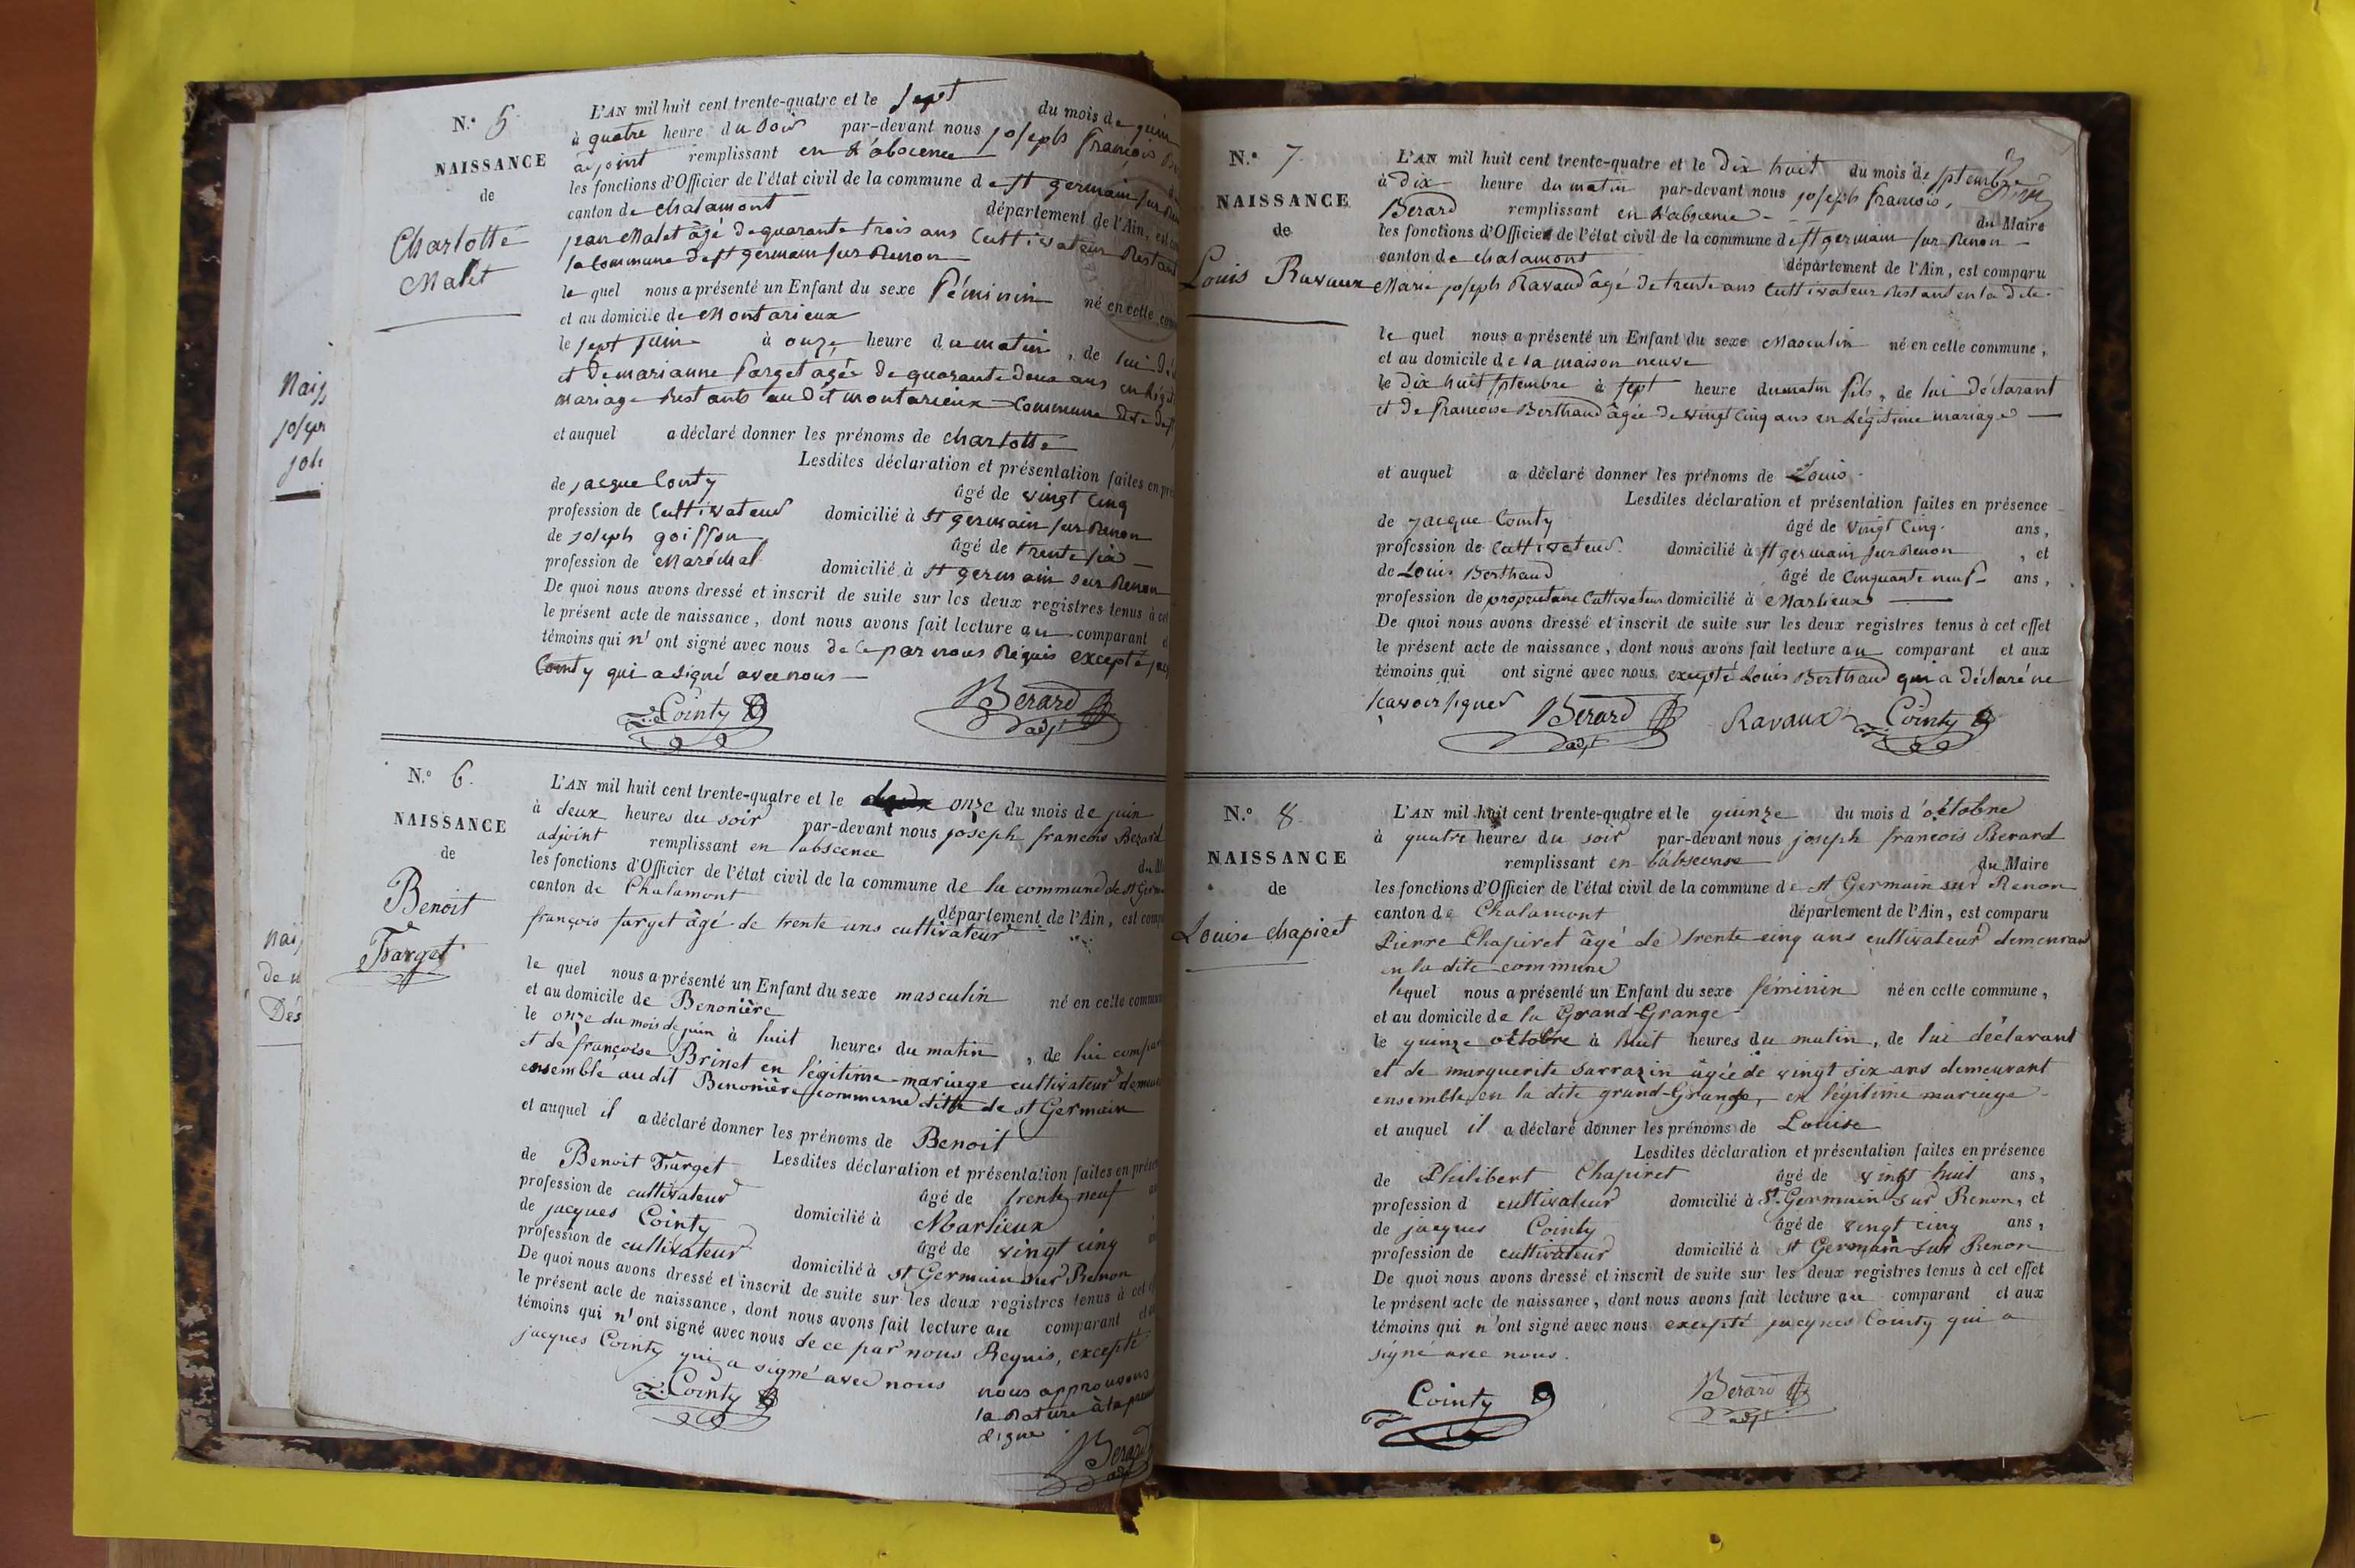 Naiss
joseph
N.° 5
NAISSANCE
de
Charlotte
Malet
L'AN mil huit cent trente-quatre et le sept du mois de juin
à quatre heure du soir par-devant nous joseph françois
adjoint remplissant en l'abscence
les fonctions d'Officier de l'état civil de la commune de st germain sur
canton de chalamont département de l'Ain, est
jean Malet âgé de quarante trois ans Cultivateur Restant
la Commune de st germain sur Renon
le quel nous a présenté un Enfant du sexe féminin né en cette
et au domicile de Montarieux
le sept juin à onze heure du matin, de lui
et de marianne farget agée de quarante deux ans en
mariage Restants au dit montarieux Commune dite de
et auquel a déclaré donner les prénoms de charlotte
Lesdites déclaration et présentation faites en
de jacque Cointy âgé de vingt Cinq
profession de Cultivateur domicilié à st germain sur Renon
de joseph goiffon âgé de trente six
profession de Maréchal domicilié à st germain sur Renon
De quoi nous avons dressé et inscrit de suite sur les deux registres tenus à cet
le présent acte de naissance, dont nous avons fait lecture au comparant
témoins qui n'ont signé avec nous de ce par nous Réquis excepté
Cointy qui a signé avec nous
Cointy Berard
adjt
N.° 6.
NAISSANCE
de
Benoit
Farget
L'AN mil huit cent trente-quatre et le onze du mois de juin
à deux heures du soir par-devant nous joseph francois Berard
adjoint remplissant en l'abscence
les fonctions d'Officier de l'état civil de la commune de la commune de st
canton de Chalamont département de l'Ain, est
françois farget âgé de trente ans cultivateur
le quel nous a présenté un Enfant du sexe masculin né en cette
et au domicile de Benonière
le onze du mois de juin à huit heures du matin, de lui
et de françoise Brinet en légitime mariage cultivateur
ensemble au dit Benonière commune ditte de st Germain
et auquel il a déclaré donner les prénoms de Benoit
Lesdites déclaration et présentation faites en
de Benoit Farget âgé de trente neuf
profession de cultivateur domicilié à Marlieux
de jacques Cointy âgé de vingt cinq
profession de cultivateur domicilié à st Germain sur Renon
De quoi nous avons dressé et inscrit de suite sur les deux registres tenus à cet
le présent acte de naissance, dont nous avons fait lecture au comparant
témoins qui n'ont signé avec nous de ce par nous Requis, excepté
jacques Cointy qui a signé avec nous nous approuvons
la Rature
Cointy
Berard
adjt
N.° 7.
NAISSANCE
de
Louis Ravaux
L'AN mil huit cent trente-quatre et le Dix huit du mois de septembre
à Dix heure du matin par-devant nous joseph francois,
Berard remplissant en l'abscence du Maire
les fonctions d'Officier de l'état civil de la commune de st germain sur Renon
canton de chalamont département de l'Ain, est comparu
Marie joseph Ravaud âgé de trente ans Cultivateur Restant en la dite
le quel nous a présenté un Enfant du sexe Masculin né en cette commune,
et au domicile de la maison neuve
le Dix huit septembre à sept heure du matin fils, de lui Déclarant
et de francoise Berthaud âgée de vingt Cinq ans en Légitime mariage
et auquel a déclaré donner les prénoms de Louis
Lesdites déclaration et présentation faites en présence
de jacque Cointy âgé de vingt Cinq ans,
profession de Cultivateur domicilié à st germain sur Renon, et
de Louis Berthaud âgé de Cinquante neuf ans,
profession de propriétaire Cultivateur domicilié à Marlieux
De quoi nous avons dressé et inscrit de suite sur les deux registres tenus à cet effet
le présent acte de naissance, dont nous avons fait lecture au comparant et aux
témoins qui ont signé avec nous excepté Louis Berthaud qui a déclaré ne
scavoir signer Berard Ravaux Cointy
adjt
N.° 8.
NAISSANCE
de
Louise chapiret
L'AN mil huit cent trente-quatre et le quinze du mois d'octobre
à quatre heures du soir par-devant nous joseph francois Berard
remplissant en l'abscense du Maire
les fonctions d'Officier de l'état civil de la commune de st Germain sur Renon
canton de Chalamont département de l'Ain, est comparu
Pierre Chapiret âgé de trente cinq ans cultivateur demeurant
en la dite commune
lequel nous a présenté un Enfant du sexe féminin né en cette commune,
et au domicile de la Grand-Grange
le quinze octobre à huit heures du matin, de lui déclarant
et de marguerite sarrazin âgée de vingt six ans demeurant
ensemble en la dite grand-Grange, en légitime mariage
et auquel il a déclaré donner les prénoms de Louise
Lesdites déclaration et présentation faites en présence
de Philibert Chapiret âgé de vingt huit ans,
profession d cultivateur domicilié à St. Germain sur Renon, et
de jacques Cointy âgé de vingt cinq ans,
profession de cultivateur domicilié à st Germain sur Renon
De quoi nous avons dressé et inscrit de suite sur les deux registres tenus à cet effet
le présent acte de naissance, dont nous avons fait lecture au comparant et aux
témoins qui n'ont signé avec nous excepté jacques Cointy qui a
signé avec nous.
Cointy Berard
adjt